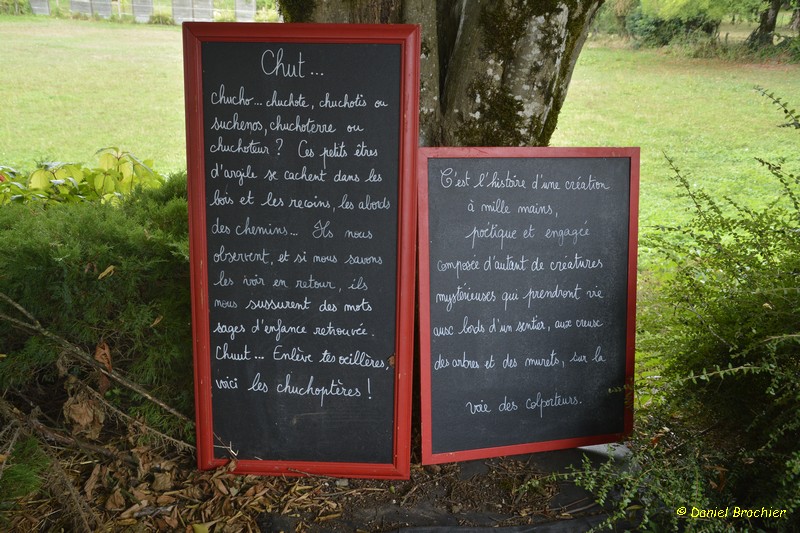 Chut...
chucho... chuchote, chuchotis ou
suchenos, chuchoterre ou
chuchoteur ? Ces petits êtres
d'argile se cachent dans les
bois et les recoins, les abords
des chemins... Ils nous
observent, et si nous savons
les voir en retour, ils
nous sussurent des mots
sages d'enfance retrouvée.
Chuut... Enlève tes oeillères,
voici les chuchoptères !
C'est l'histoire d'une création
à mille mains,
poëtique et engagée
composée d'autant de créatures
mystérieuses qui prendront vie
aux bords d'un sentier, aux creux
des arbres et des murets, sur la
voie des colporteurs.
© Daniel Brochier